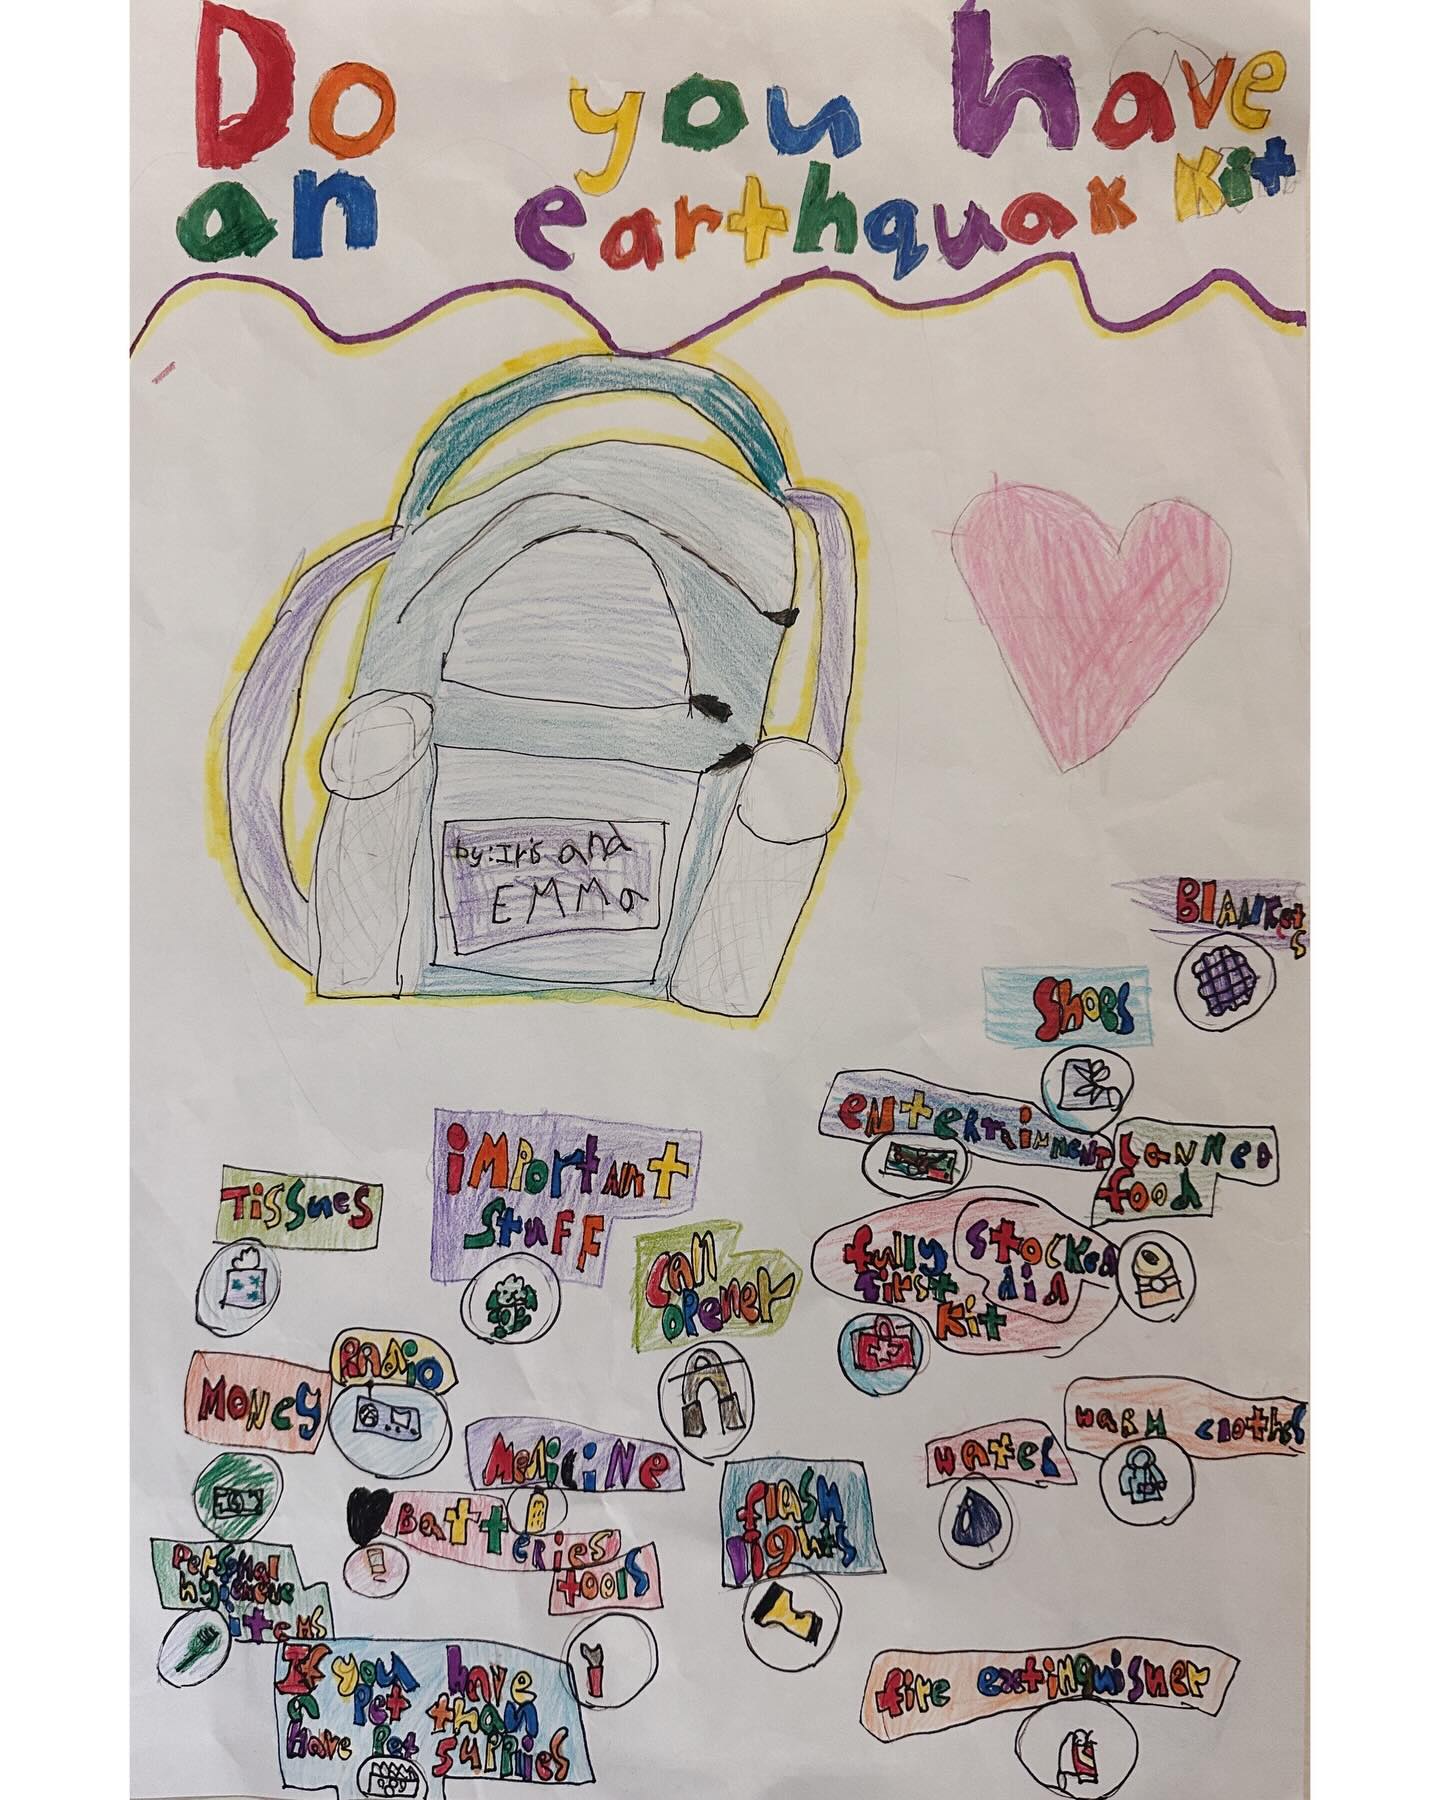 Do you have
an earthquak kit
by: Iris and
EMMa
Blankets
Shoes
entertrinment
Canned
food
Tissues
important
stuff
Can
opener
fully stocked
first aid
kit
Radio
Money
Medicine
Water
warm clothes
Batteries
flash
lights
Personal
hygiene
items
tools
If you have
a pet than
have pet supplies
fire extinquisher